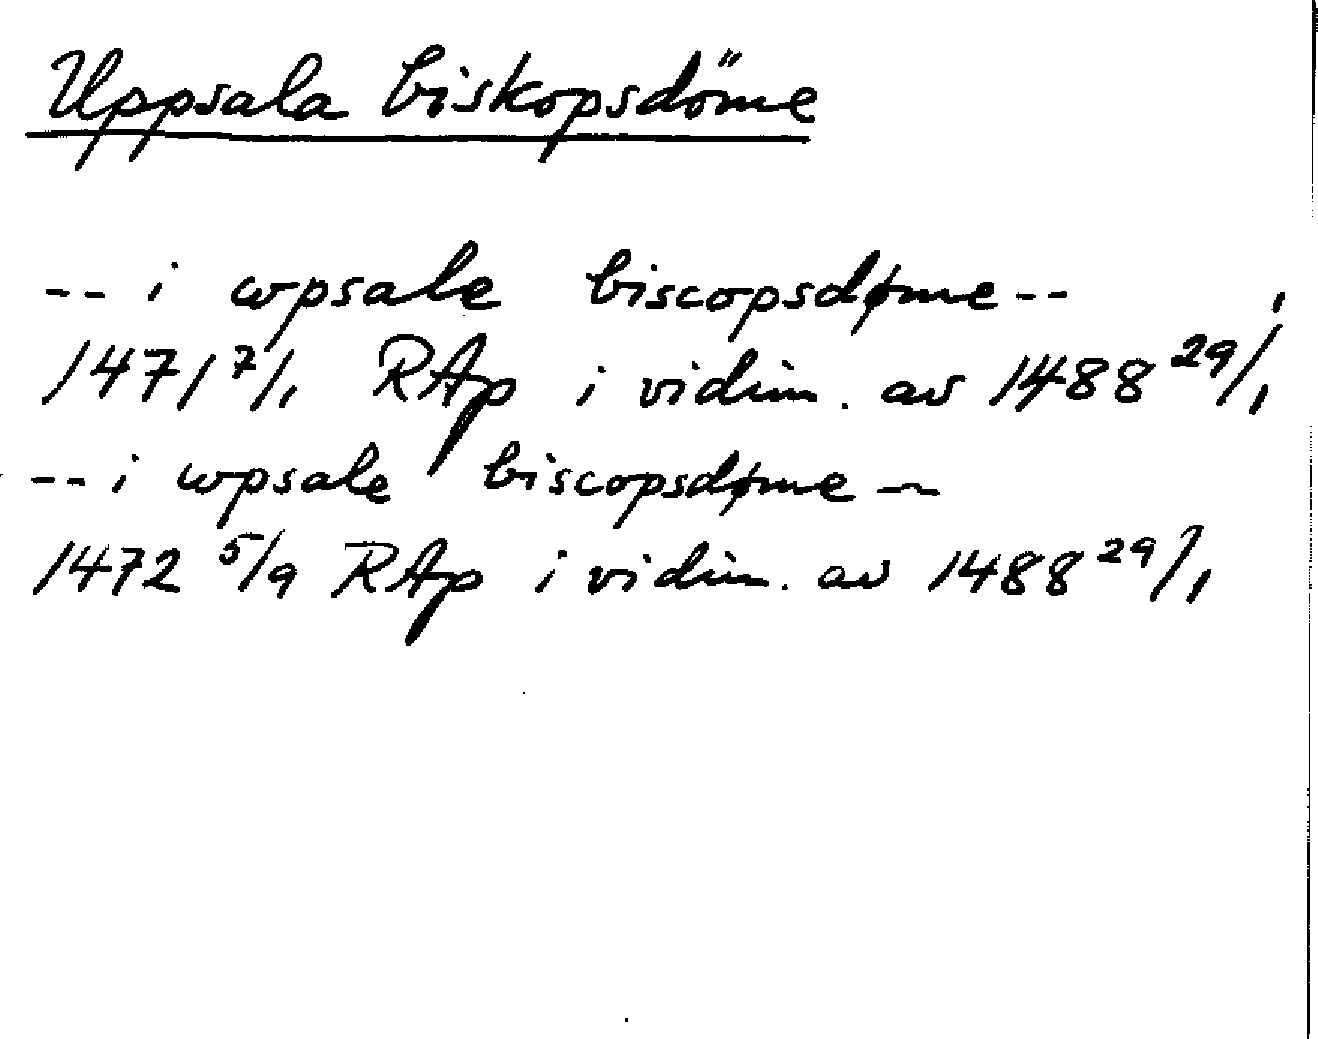 Uppsala biskopsdöme
-- i wpsale biscopsdøme --
1471 7/1 RAp i vidim. av 1488 29/1
-- i wpsale biscopsdøme --
1472 5/9 RAp i vidim. av 1488 29/1